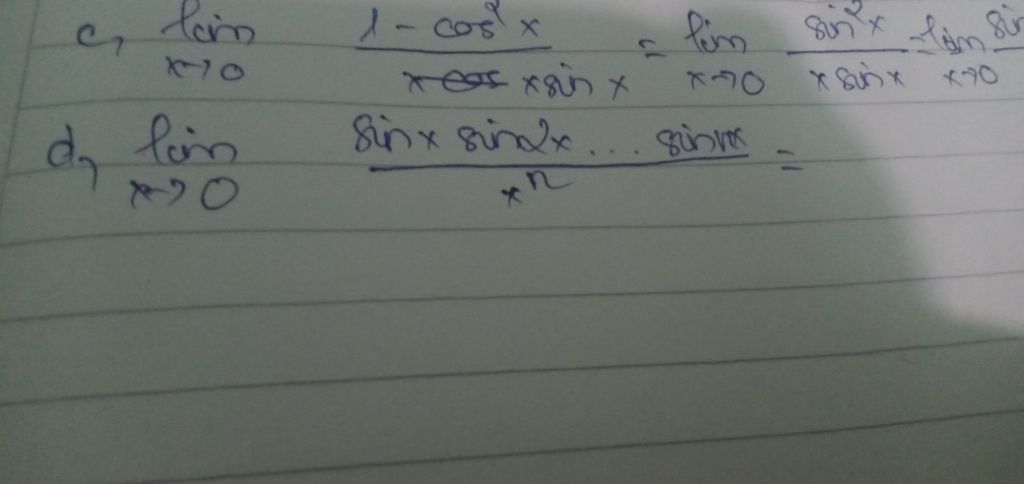 c, lim x→0 1 - cos² x / x sin x = lim x→0 sin² x / x sin x = lim x→0 sin
d, lim x→0 sin x sin 2x ... sin nx / xⁿ =